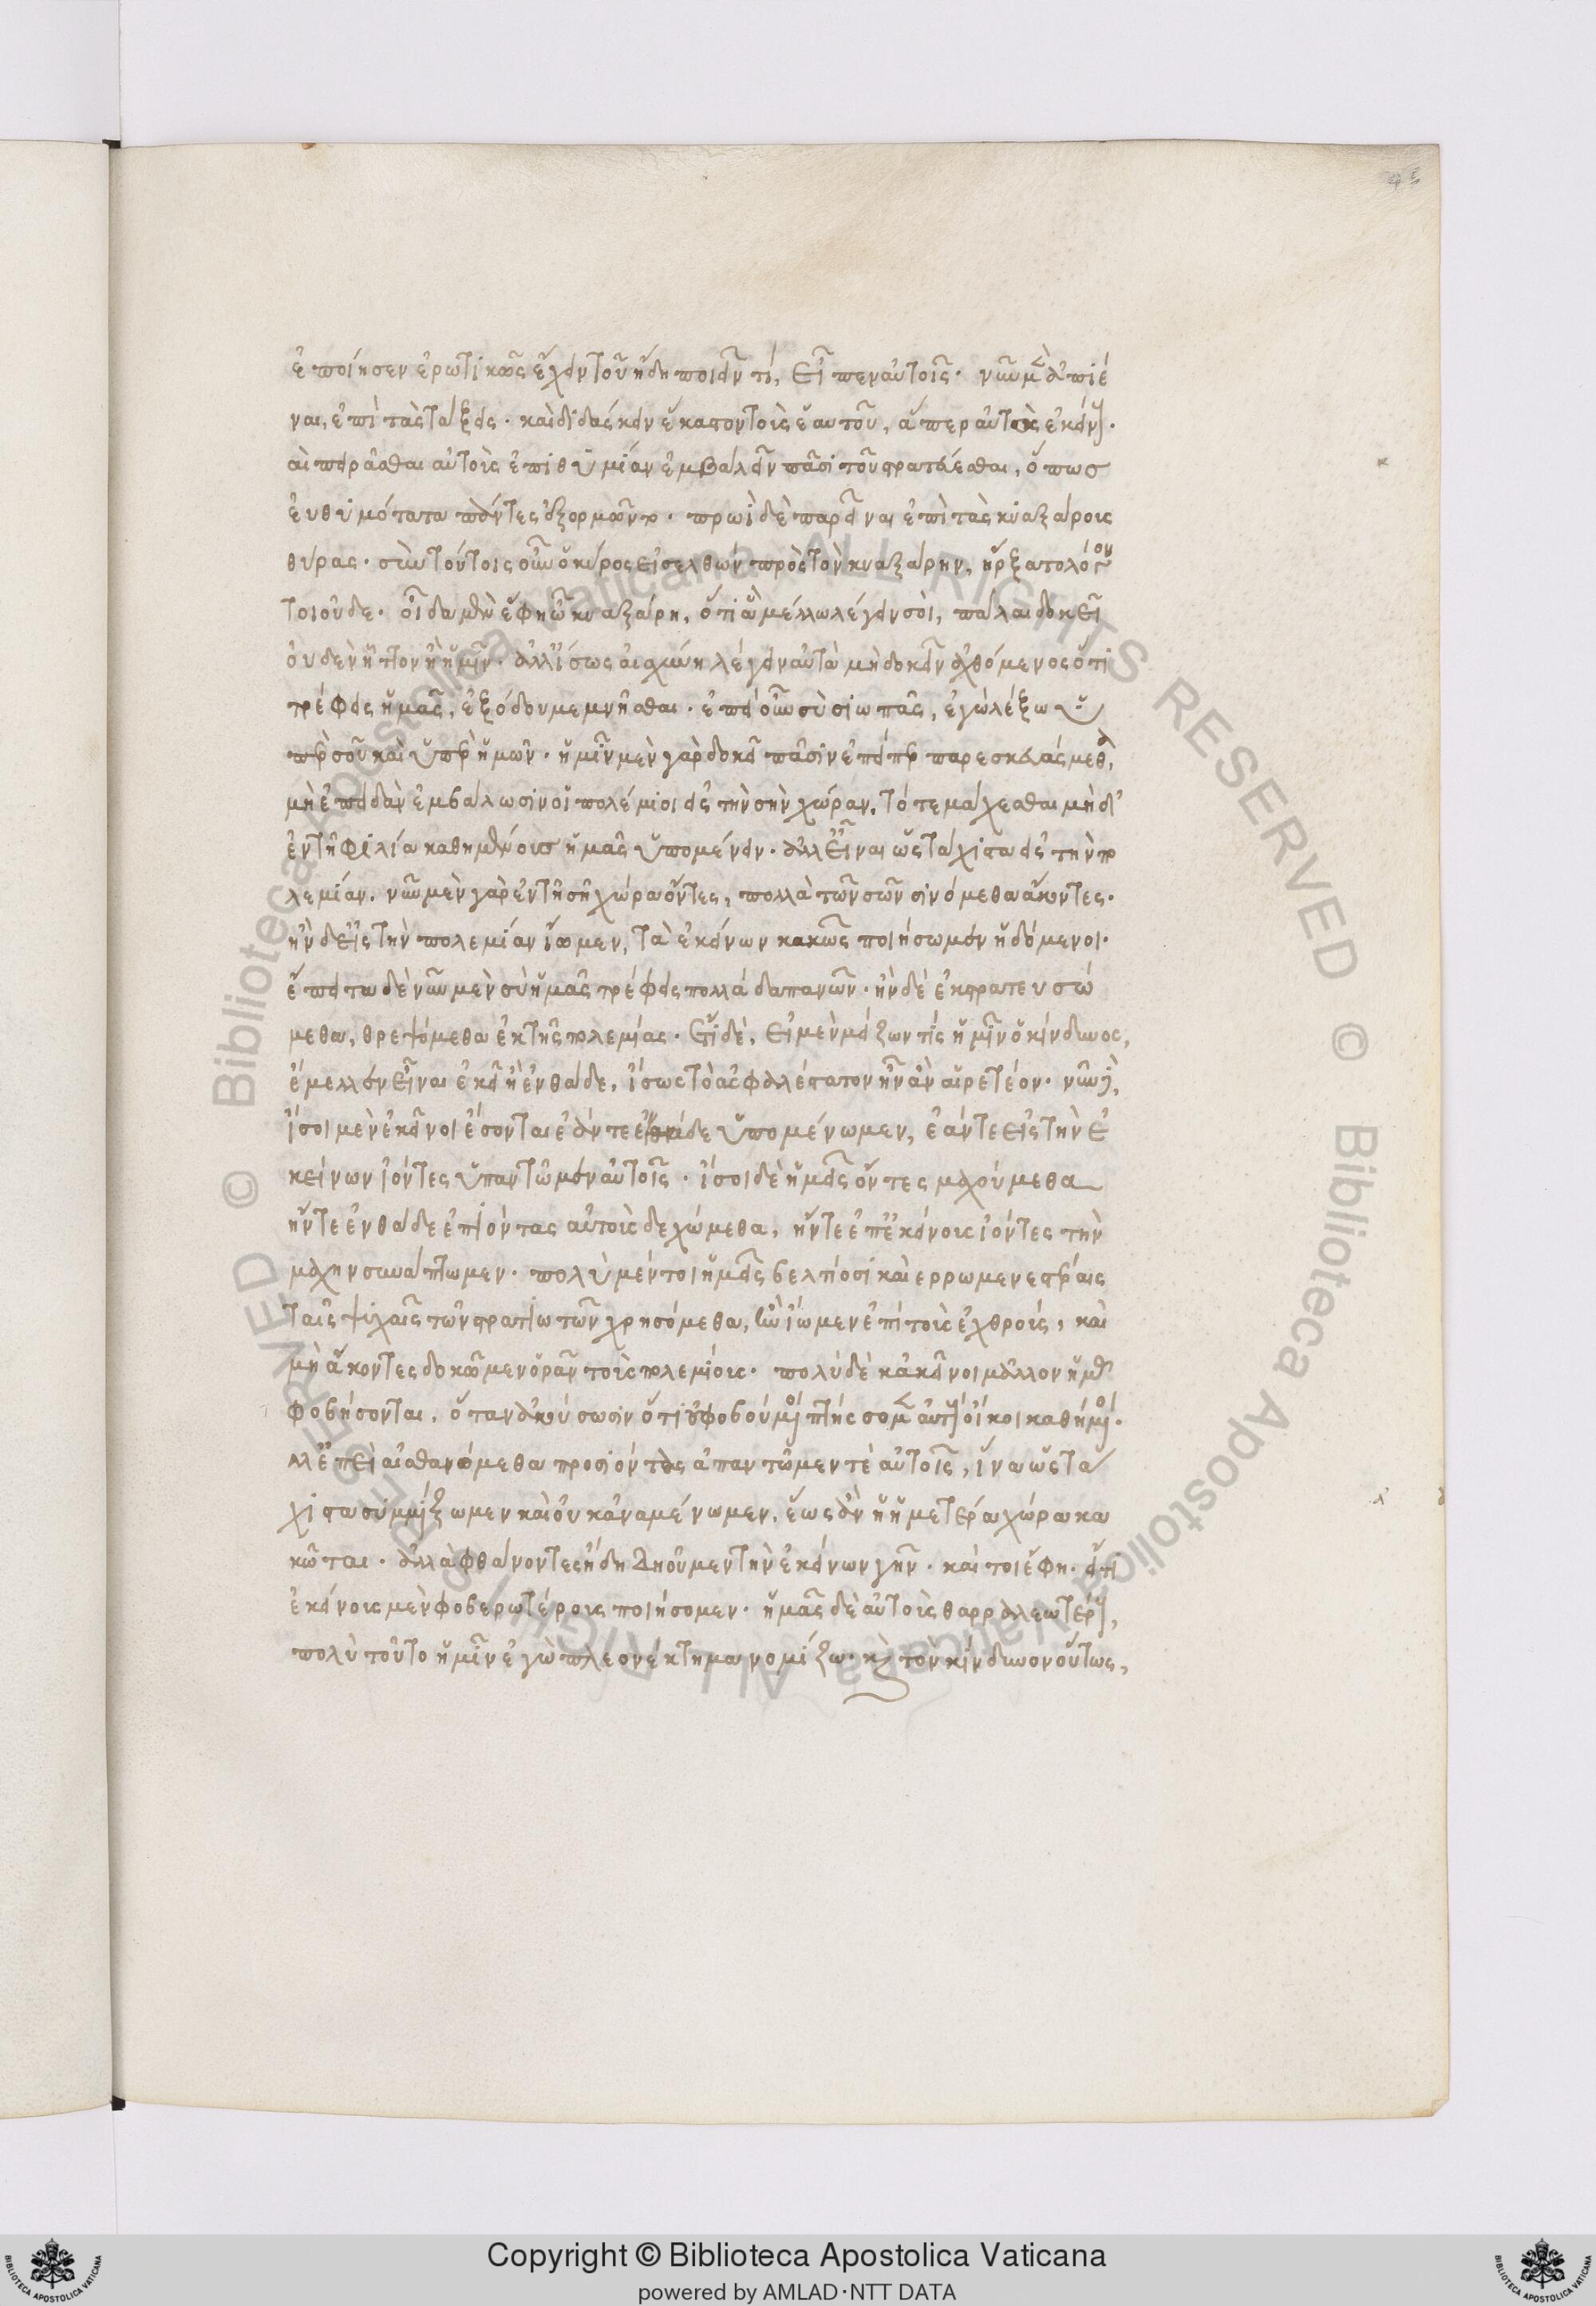 ἐποίησεν ἐρωτικῶς ἔχειν τοῦ ἤδη ποιεῖν τί, εἶπεν αὐτοῖς· νῦν μὲν ἀπιέ
ναι, ἐπὶ τὰς τάξεις· καὶ διδάσκειν ἕκαστον τοὺς ἑαυτοῦ, ἅπερ αὐτὸς ἐκείνους·
καὶ πειρᾶσθαι αὐτοὺς ἐπιθυμίαν ἐμβαλεῖν πᾶσι τοῦ στρατεύεσθαι, ὅπως
εὐθυμότατα πάντες ἐξορμῶντο· πρωὶ δὲ παρεῖναι ἐπὶ τὰς κυαξάρους
θύρας· σὺν τούτοις οὖν ὁ κύρος εἰσελθὼν πρὸς τὸν κυαξάρην, ἤρξατο λόγον
τοιοῦδε· οἶδα μὲν ἔφη ὦ κυαξάρη, ὅτι ἃ μέλλω λέγειν σοὶ, πάλαι δοκεῖ
οὐδὲν ἧττον ἢ ἡμῖν· ἀλλ' ἴσως αἰσχύνη λέγειν αὐτὰ μὴ δοκεῖν ἀχθόμενος ὅτι
τρέφεις ἡμᾶς, ἐξόδου μεμνῆσθαι· ἐπεὶ οὖν σὺ σιωπᾶς, ἐγὼ λέξω ὑ
πὲρ σοῦ καὶ ὑπὲρ ἡμῶν· ἡμῖν μὲν γὰρ δοκεῖ πᾶσιν ἐπείπερ παρεσκευάσμεθα,
μὴ ἐπειδὰν ἐμβάλωσιν οἱ πολέμιοι εἰς τὴν σὴν χώραν, τότε μάχεσθαι μηδ'
ἐν τῇ φιλία καθημένους ἡμᾶς ὑπομένειν· ἀλλ' εἶναι ὡς τάχιστα εἰς τὴν πο
λεμίαν. νῦν μὲν γὰρ ἐν τῇ σῇ χώρα ὄντες, πολλὰ τῶν σῶν σινόμεθα ἄκοντες·
ἢν δ' εἰς τὴν πολεμίαν ἴωμεν, τὰ ἐκείνων κακῶς ποιήσωμεν ἡδόμενοι·
ἔπειτα δὲ νῦν μὲν σὺ ἡμᾶς τρέφεις πολλὰ δαπανῶν· ἢν δὲ ἐκστρατευσώ
μεθα, θρεψόμεθα ἐκ τῆς πολεμίας· ἔτι δὲ, εἰ μὲν μείζων τίς ἡμῖν ὁ κίνδυνος,
ἔμελλεν εἶναι ἐκεῖ ἢ ἐνθάδε, ἴσως τὸ ἀσφαλέστατον ἦν ἂν αἱρετέον· νῦν δὲ,
ἴσοι μὲν ἐκεῖνοι ἔσονται ἐάν τε ἐνθάδε ὑπομένωμεν, ἐάν τε εἰς τὴν ἐ
κείνων ἰόντες ὑπαντῶμεν αὐτοῖς· ἴσοι δὲ ἡμεῖς ὄντες μαχούμεθα
ἤν τε ἐνθάδε ἐπιόντας αὐτοὺς δεχώμεθα, ἤν τε ἐπ' ἐκείνους ἰόντες τὴν
μάχην συνάπτωμεν· πολὺ μέντοι ἡμεῖς βελτίοσι καὶ ερρωμενεστέραις
ταῖς ψυχαῖς τῶν στρατιωτῶν χρησόμεθα, ἐὰν ἴωμεν ἐπὶ τοὺς ἐχθροὺς, καὶ
μὴ ἄκοντες δοκῶμεν ὁρᾶν τοὺς πολεμίους· πολὺ δὲ κἀκεῖνοι μᾶλλον ἡμᾶς
φοβήσονται, ὅταν ἀκούσωσιν ὅτι οὐ φοβούμενοι πτήσσομεν αὐτοὺς οἴκοι καθήμενοι·
ἀλλ' ἐπεὶ αἰσθανόμεθα προσιόντας ἀπαντῶμεν τὲ αὐτοῖς, ἵνα ὡς τά
χιστα συμμίξωμεν καὶ οὐκ ἀναμένωμεν, ἕως ἂν ἡ ἡμετέρα χώρα κα
κῶται· ἀλλὰ φθάνοντες ἤδη δηοῦμεν τὴν ἐκείνων γῆν· καίτοι ἔφη· εἴ τι
ἐκείνους μὲν φοβερωτέρους ποιήσομεν· ἡμᾶς δὲ αὐτοὺς θαρραλεωτέρους,
πολὺ τοῦτο ἡμῖν ἐγὼ πλεονέκτημα νομίζω· καὶ τὸν κίνδυνον οὕτως,
Copyright © Biblioteca Apostolica Vaticana
powered by AMLAD·NTT DATA